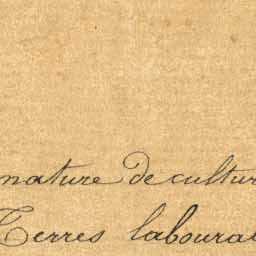 nature de cultur
Terres laboura